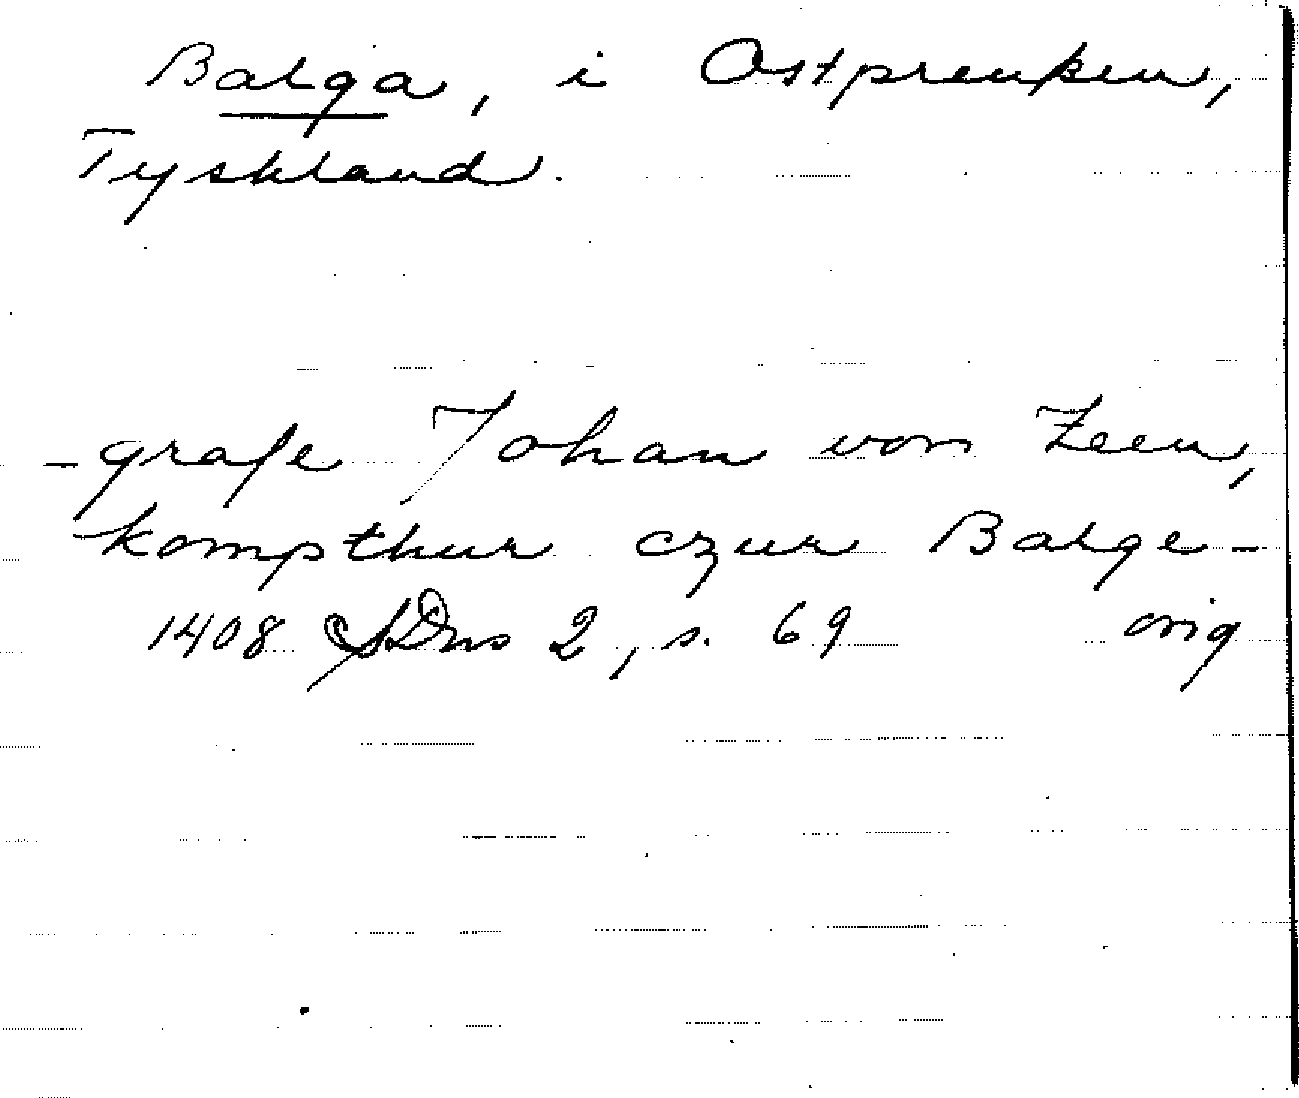 Balga, i Ostpreußen,
Tyskland.
- grafe Johan von Zeen,
kompthur czur Balge -
1408 SDns 2, s. 69 orig